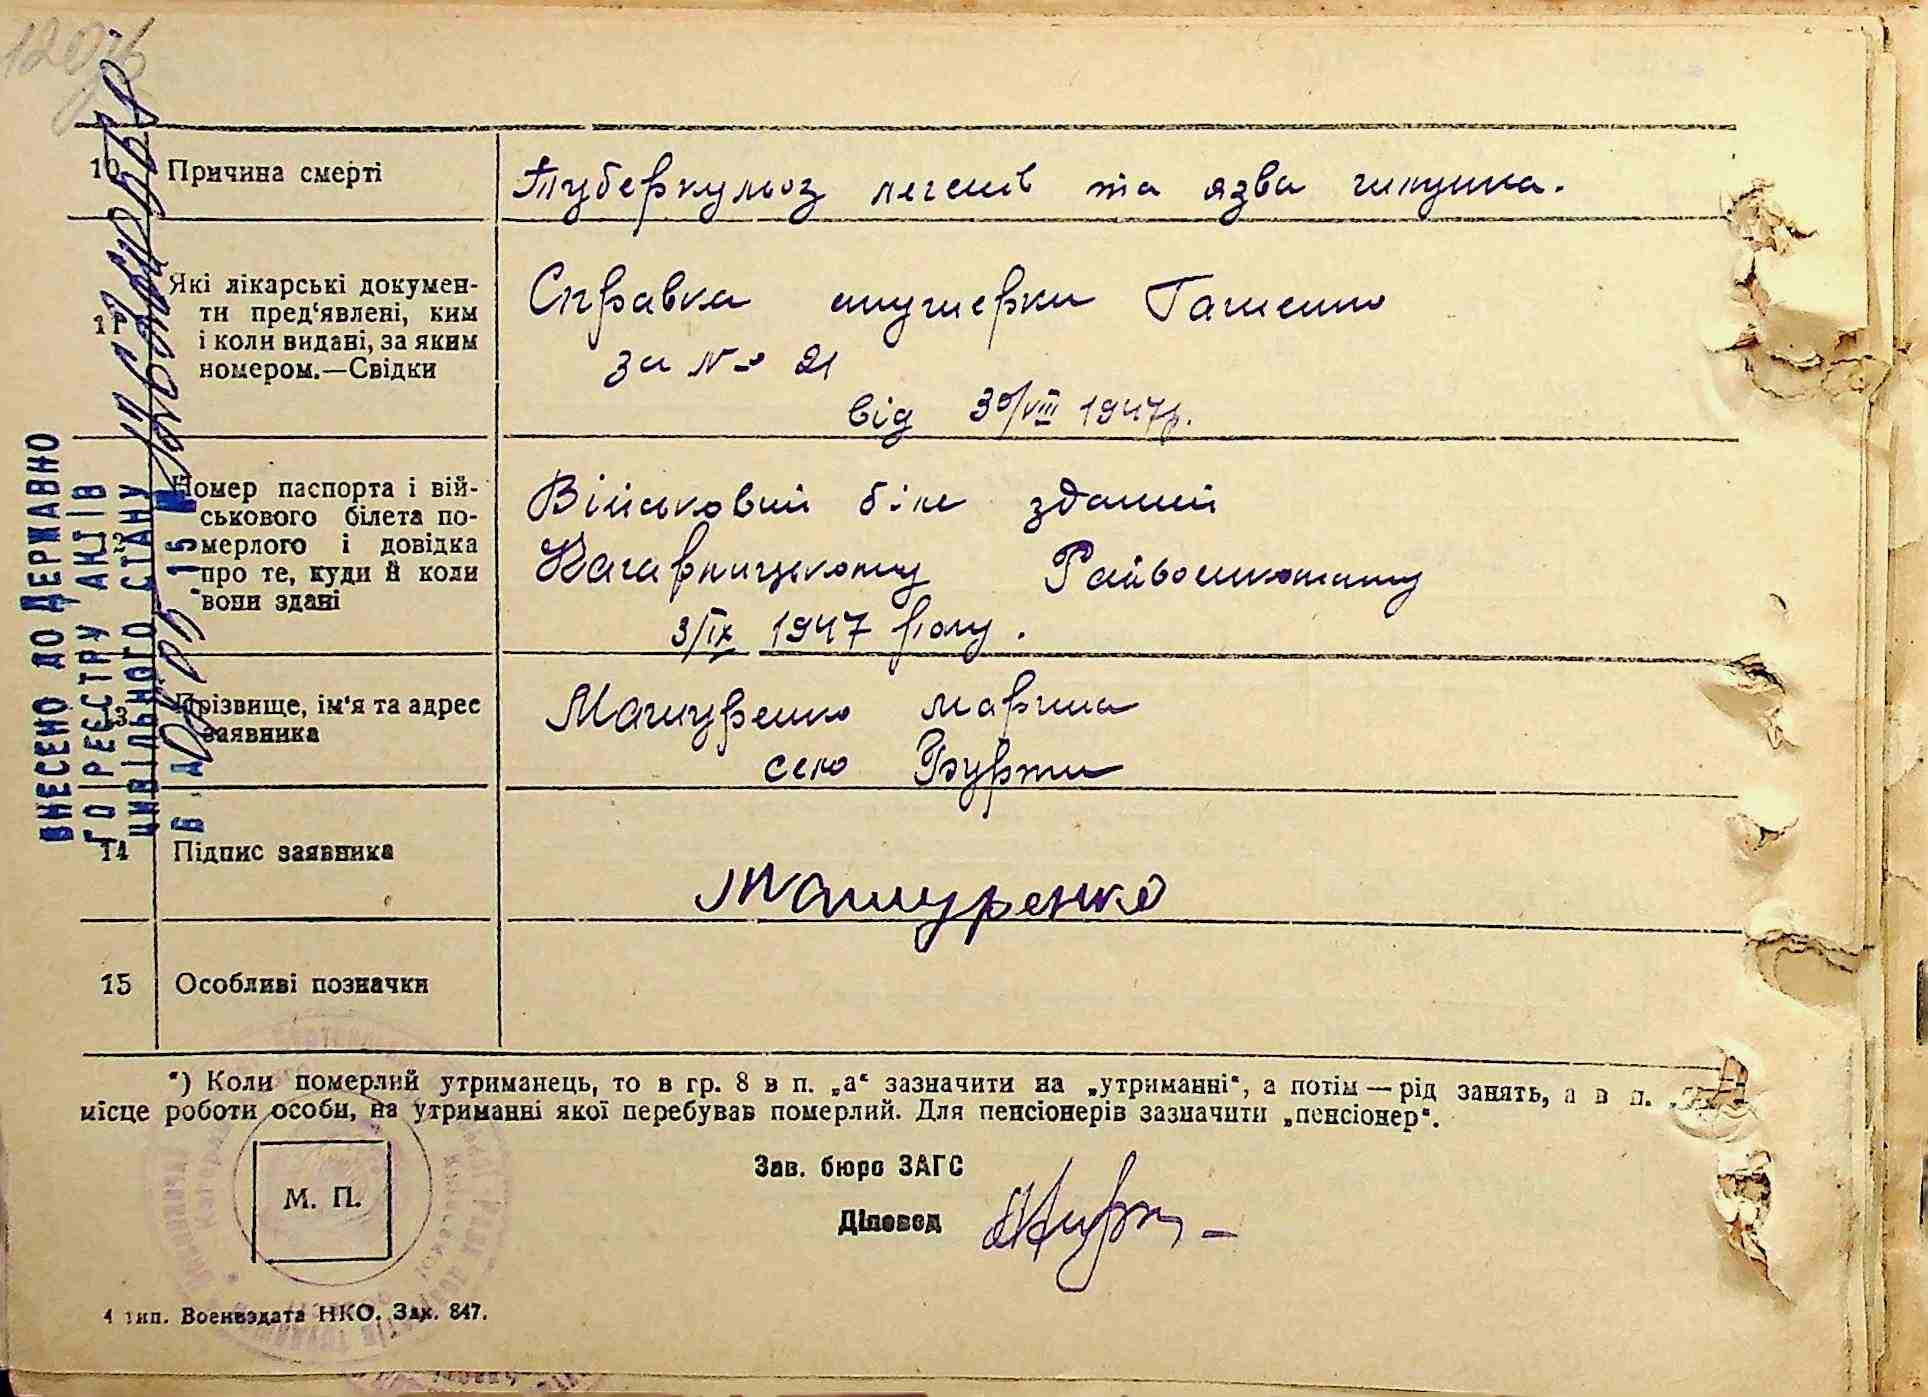 10 Причина смерті
Туберкульоз легенів та язва
11 Які лікарські докумен-
ти пред'явлені, ким
і коли видані, за яким
номером.—Свідки
Справка акушерки
за № 21
від 30/VIII 1947р.
Номер паспорта і вій-
ськового білета по-
мерлого і довідка
про те, куди й коли
вони здані
Військовий біле зданий
Кагарлицькому Райвоенкомату
3/IX 1947 року.
13 Прізвище, ім'я та адрес
заявника
Машуренко Марина
село Бурти
14 Підпис заявника
Машуренко
15 Особливі позначки
*) Коли померлий утриманець, то в гр. 8 в п. „а“ зазначити на „утриманні“, а потім — рід занять, а в п.
місце роботи особи, на утриманні якої перебував померлий. Для пенсіонерів зазначити „пенсіонер“.
Зав. бюро ЗАГС
М. П.
Діловод
4 тип. Воениздата НКО. Зак. 847.
ВНЕСЕНО ДО ДЕРЖАВНО
ГО РЕЄСТРУ АКТІВ
ЦИВІЛЬНОГО СТАНУ